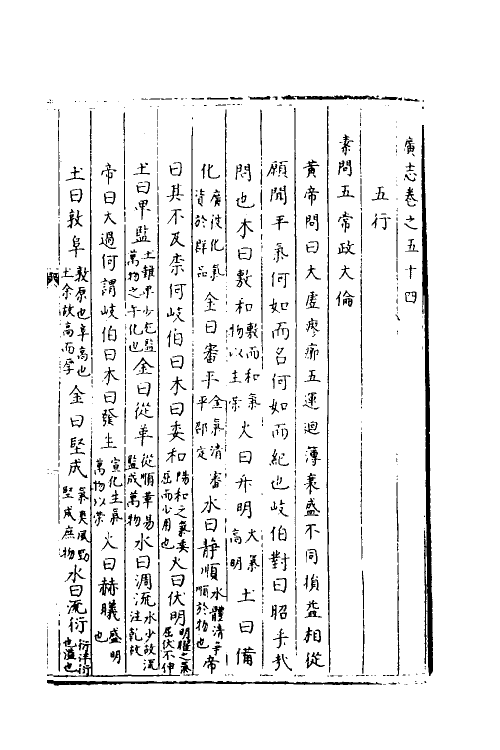 廣志卷之五十四
五行
素問五常政大倫
黃帝問曰大虛廖廓五運廻薄衰盛不同損益相從
願聞平氣何如而名何如而紀也岐伯對曰昭乎哉
問也木曰敷和敷而和氣物以生榮火曰升明大氣高明土曰備
化廣彼化氣資於群品金曰審平金氣清審平郎定水曰静順水體清平順於物也帝
曰其不及柰何岐伯曰木曰委和陽和之氣委屈而少用也火曰伏明明曜之氣屈伏不伸
土曰卑監土雖卑少尤監萬物之午化也金曰從革從順革易監成萬物水曰涸流水少故流注乾故
帝曰大過何謂岐伯曰木曰發生宣化生氣萬物以榮火曰赫曦盛明也
土曰敦阜敦厚也阜高也土余故高而厚金曰堅成氣爽風勁堅成庶物水曰流衍衍泮衍也溢也